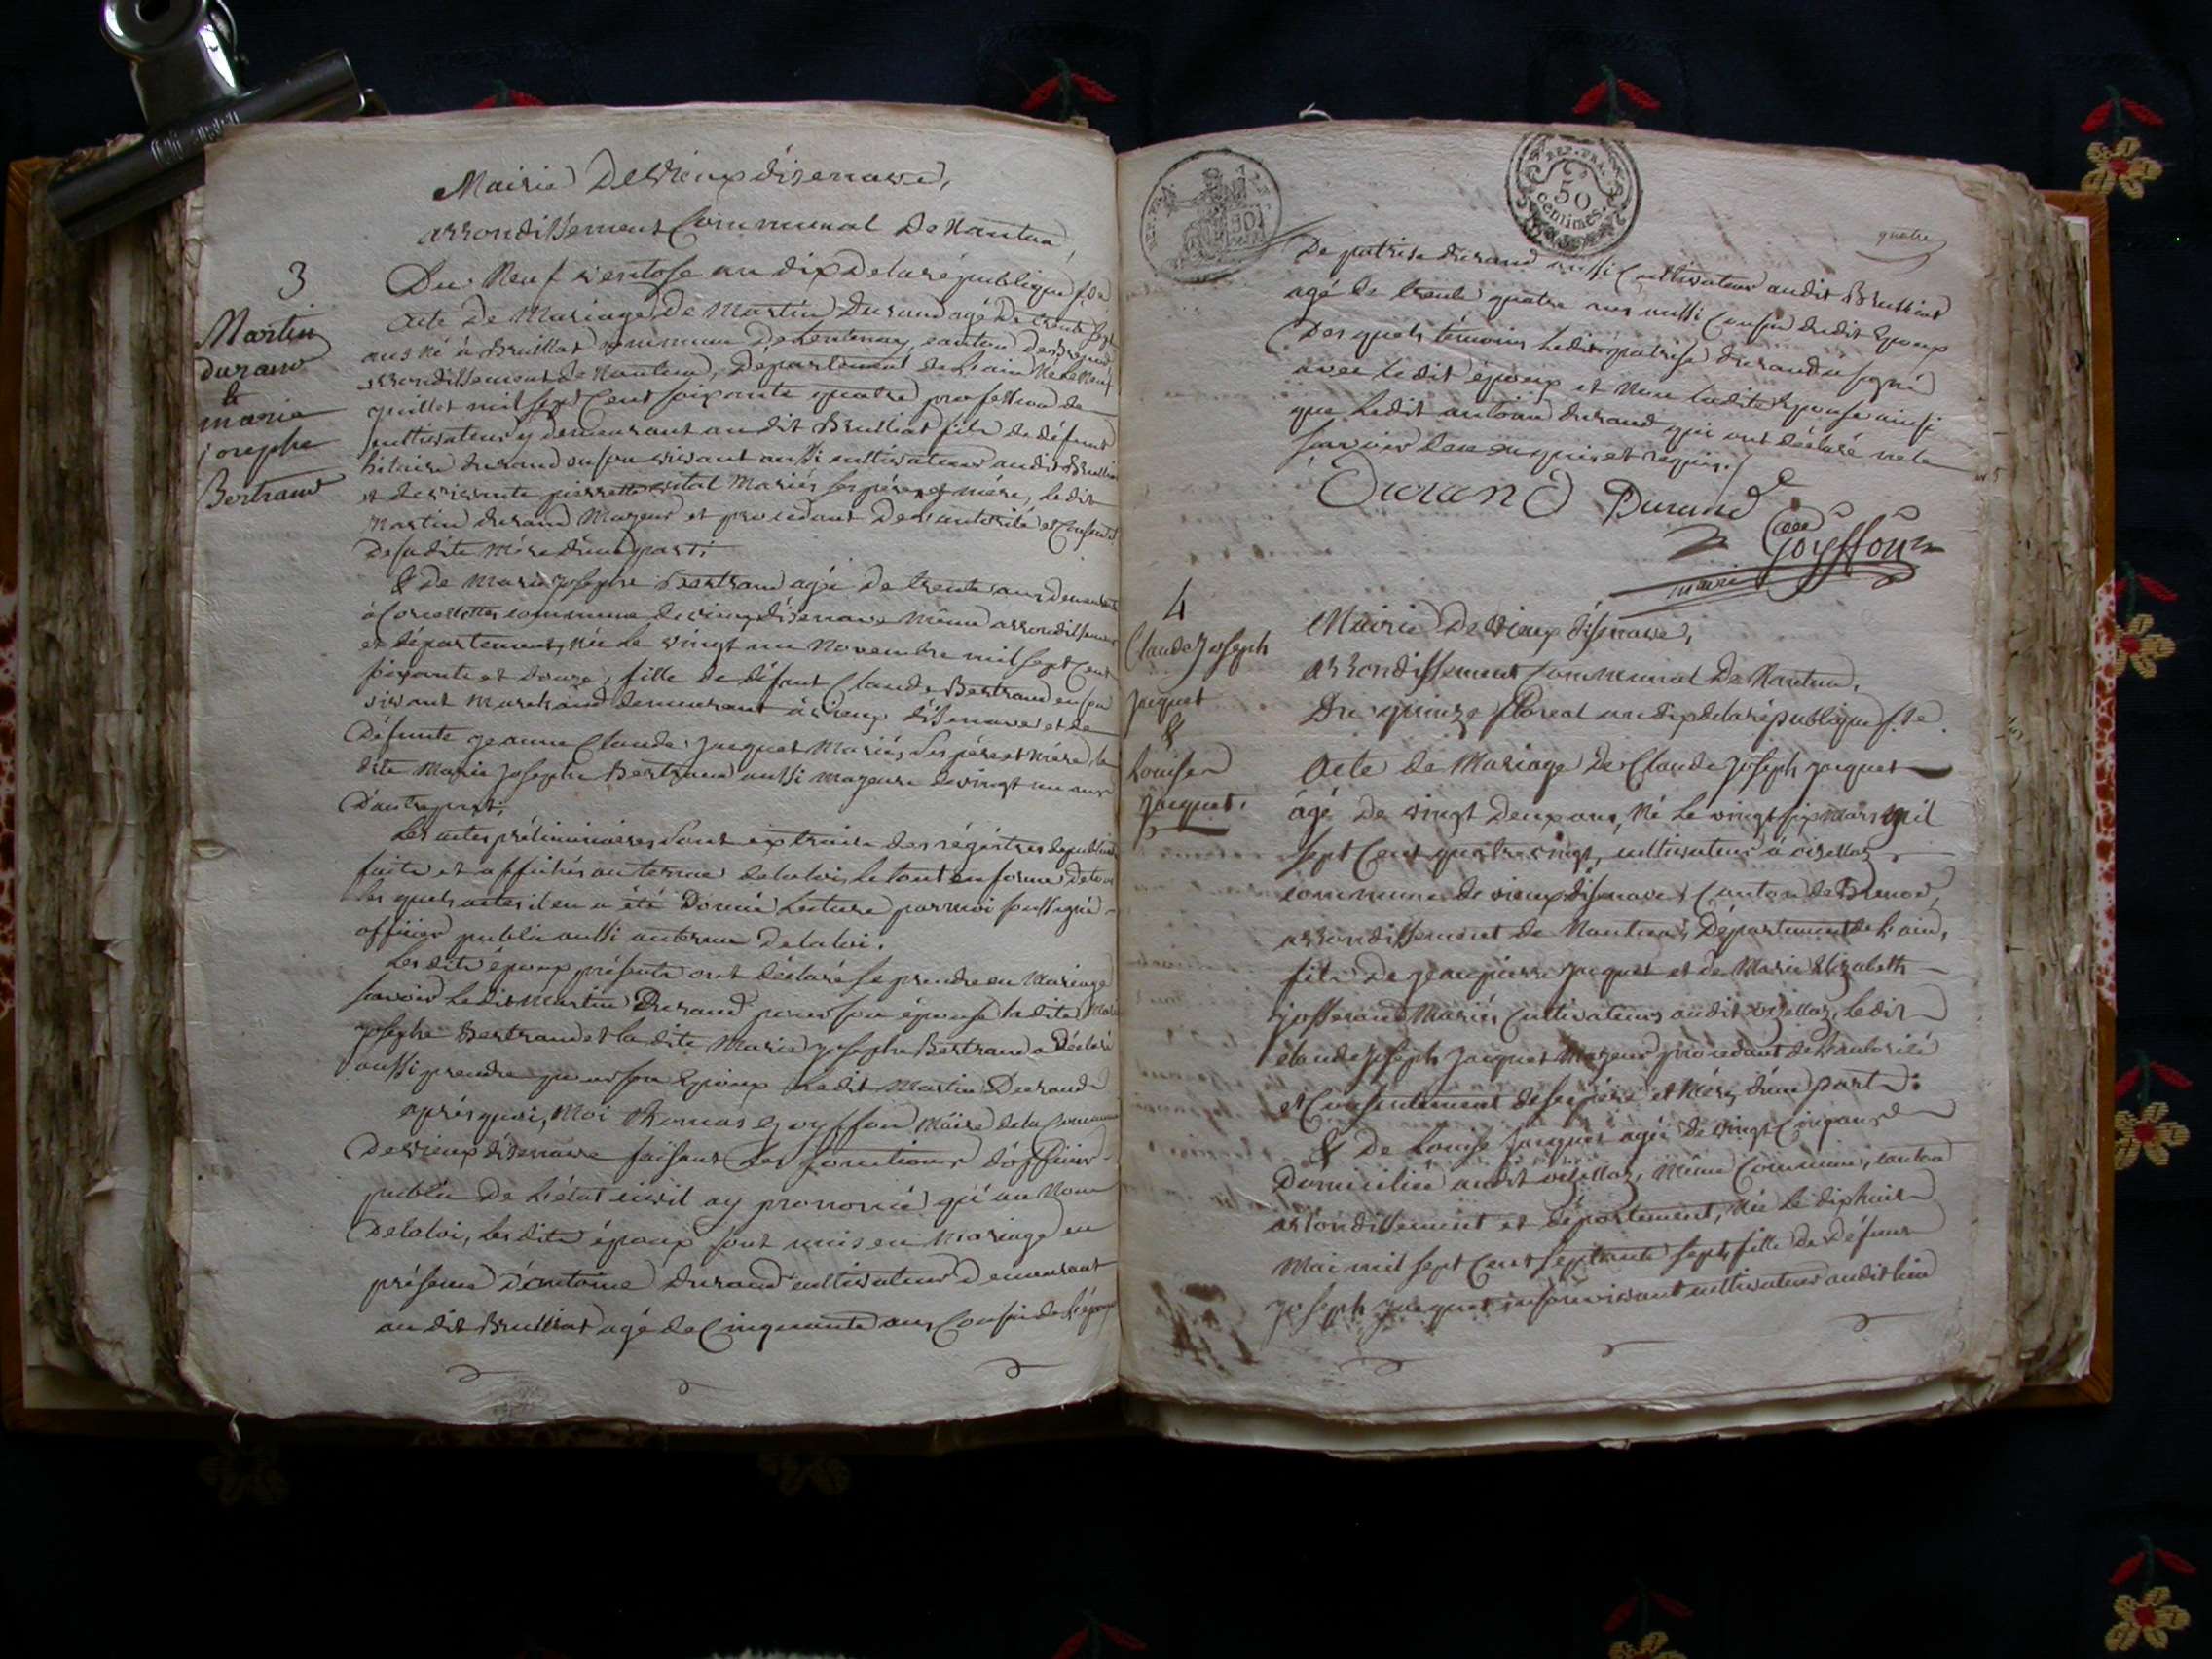 Mairie De Vieux d'izenave,
arrondissement Communal De Nantua
3
Martin
durand
&
marie
josephe
Bertrand
Du Neuf ventose an dix de la république f.se
Acte De Mariage De Martin Durand agé De trente sept
ans né à Brulliat commune De Lentenay, canton De Brenod
arrondissement de Nantua, Département de L'ain Né Le Neuf
juillet mil sept Cent soixante quatre profession de
cultivateur y demeurant au dit Brulliat fils de défunt
hilaire durand en son vivant aussi cultivateur audit Brulliat
et de vivante pierrette vital Mariés ses père et mère, Ledit
Martin durand Majeur et procedant De l'autorité et Consent.t
De sa dite Mère d'une part;
& De Marie josephe Bertrand agée De trente ans demeurant
à Corcelettes commune de vieux d'izenave Même arrondissement
et département, née Le vingt un Novembre mil sept Cent
soixante et douze, fille de défunt Claude Bertrand en son
vivant Marchand demeurant à vieux d'izenave et de
Défunte jeanne Claude jacquet Mariés, ses père et mère, la
dite Marie josephe Bertrand aussi majeure de vingt un ans
D'autre part;
Les actes préliminaires sont extraits des régistres de publications
faite et affichés au terme de la loi, le tout en forme, de tous
les quels actes il en a été Donné Lecture par moi soussigné
officier public aussi au terme De la loi.
Les dits époux présents ont déclaré se prendre en Mariage
savoir Ledit Martin Durand pour son épouse la dite Marie
josephe Bertrand et la dite Marie josephe Bertrand a Déclaré
aussi prendre pour son Epoux Le dit Martin Durand
après quoi, Moi Thomas goyffon Maire de la Commune
De vieux d'izenave faisant Les fonctions d'officier
public De L'état civil ay prononcé qu'au Nom
De la loi, Les dits époux sont unis en Mariage en
présence D'antoine Durand cultivateur Demeurant
au dit Brulliat agé de Cinquante ans Cousin de L'époux
REP. FRA.
50
centimes.
quatre
De patrice durand aussi Cultivateur audit Brulliat
agé De trente quatre ans aussi Cousin dudit Epoux
Des quels témoins Ledit patrice durand a signé
avec Ledit époux et Non Ladite Epouse ainsi
que Ledit antoine durand qui ont déclaré ne le
savoir de ce enquis et requis./.
Durand Durand
Goyffon
maire
4
Claude Joseph
jacquet
&
Louise
jacquet.
Mairie De vieux d'izenave,
arrondissement Communal De Nantua,
Du quinze floreal an dix de la république f.se
Acte de Mariage De Claude joseph jacquet
âgé De vingt Deux ans, Né Le vingt six mars mil
sept Cent quatre vingt, cultivateur à oizellaz,
commune de vieux d'izenave, Canton de Brenod,
arrondissement de Nantua, Département de L'ain,
fils De jean pierre jacquet et de Marie Elizabeth
josserand Mariés, Cultivateurs audit oizellaz, Ledit
claude joseph jacquet Majeur procedant de L'autorité
et Consentement de ses père et Mère, d'une part:
& De Louise jacquet agée De vingt Cinq ans
Domiciliée audit oizellaz, Même Commune, canton
arrondissement et département, Née Le dix huit
Mai mil sept Cent septante sept, fille De Défunt
joseph jacquet en son vivant cultivateur audit lieu